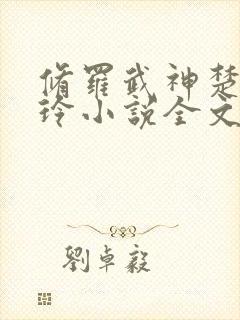 脩羅武神楚
玲小説全文
劉卓毅